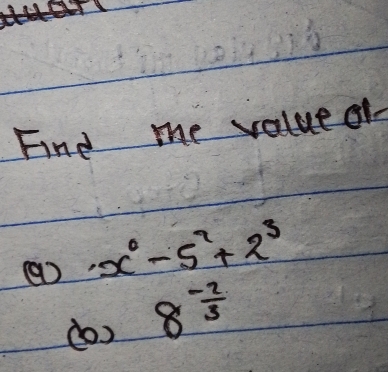 Find the value of
(a) x⁰ - 5² + 2³
(b) 8^(-2/3)